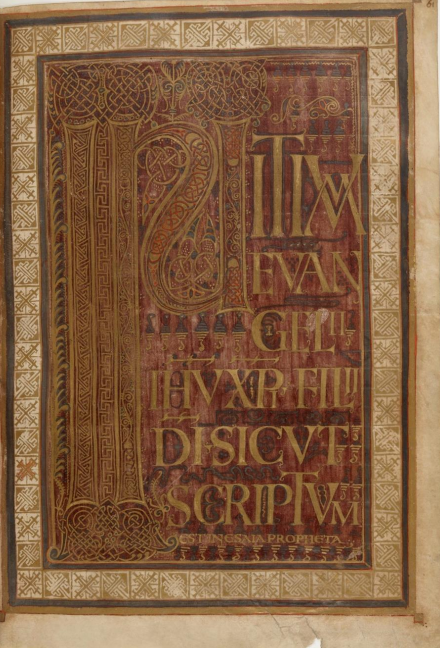 INITIVM
EVAN
GELII
IHV XPI FILII
DI SICVT
SCRIPTVM
EST IN ESAIA PROPHETA